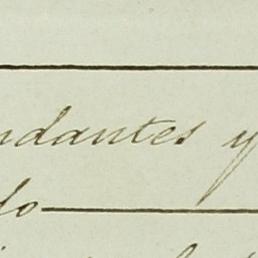 ndantes y
do